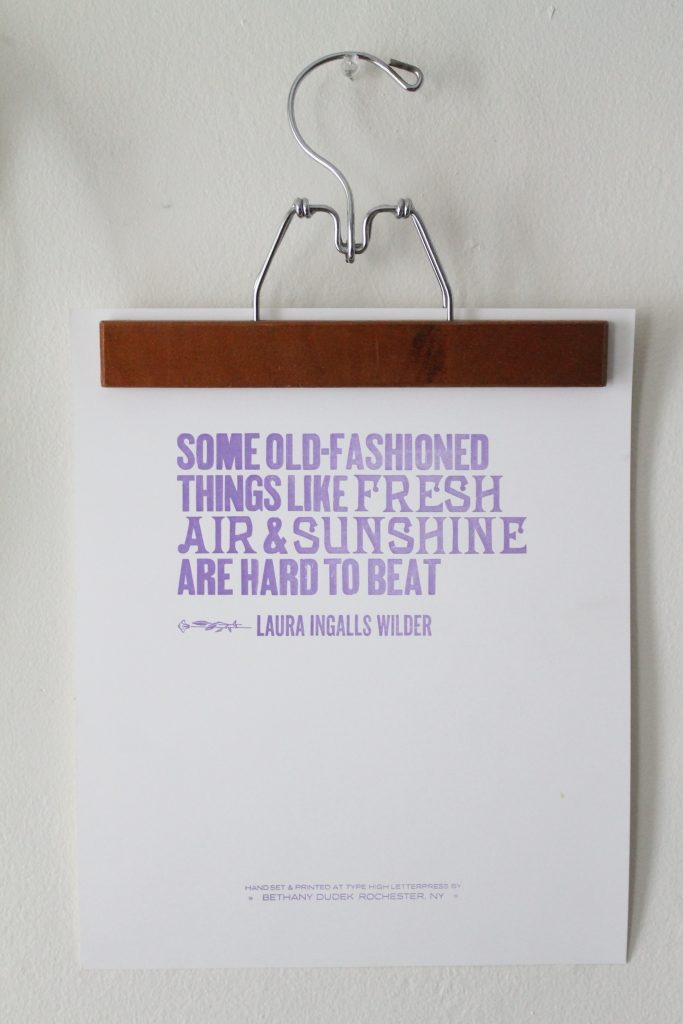 SOME OLD-FASHIONED
THINGS LIKE FRESH
AIR & SUNSHINE
ARE HARD TO BEAT
LAURA INGALLS WILDER
HAND SET & PRINTED AT TYPE HIGH LETTERPRESS BY
BETHANY DUDEK ROCHESTER, NY